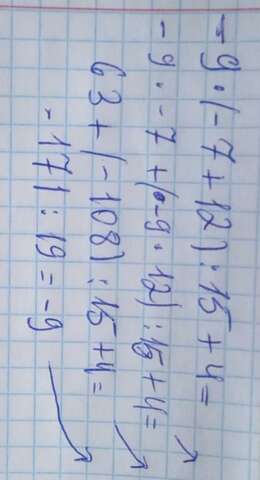 -9·(-7+12):15+4=
-9·-7+(-9·12):15+4=
63+(-108):15+4=
-171:19=-9